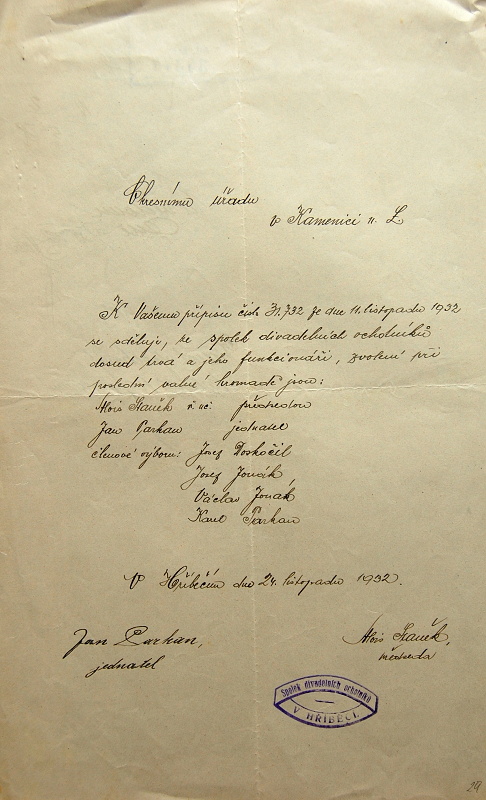 Okresnímu úřadu
v Kamenici n. L
K Vašemu přípisu čísl. 31.732 ze dne 11. listopadu 1932
se sděluje, že spolek divadelních ochotníků
dosud trvá a jeho funkcionáři, zvolení při
poslední valné hromadě jsou:
Alois Staněk ř. uč. předsedou
Jan Parkan jednatel
členové výboru: Josef Doskočil
Josef Jonák
Václav Jonák
Karel Parkan
V Hříběcím dne 24. listopadu 1932.
Jan Parkan,
jednatel
Alois Staněk,
předseda
Spolek divadelních ochotníků
V HŘÍBĚCÍ.